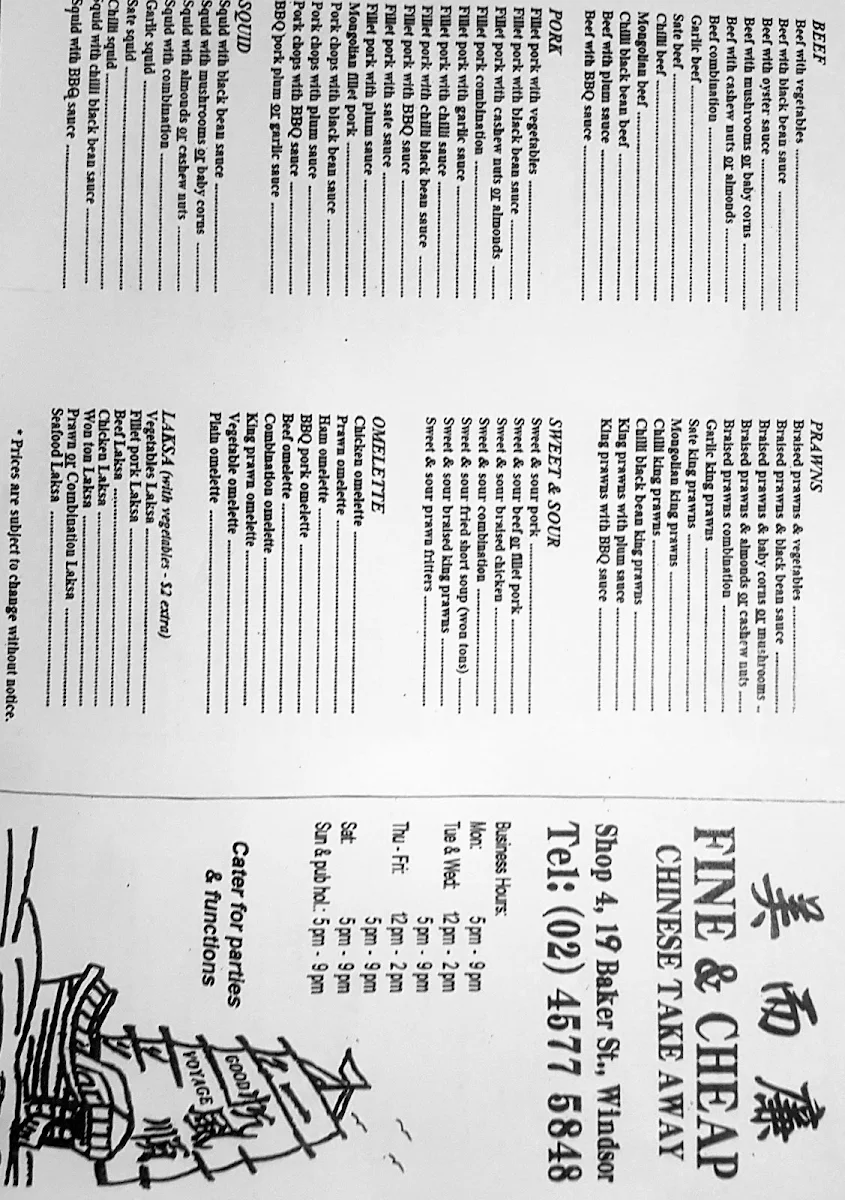 BEEF
Beef with vegetables
Beef with black bean sauce
Beef with oyster sauce
Beef with mushrooms or baby corns
Beef with cashew nuts or almonds
Beef combination
Garlic beef
Sate beef
Chilli beef
Mongolian beef
Chilli black bean beef
Beef with plum sauce
Beef with BBQ sauce
PORK
Fillet pork with vegetables
Fillet pork with black bean sauce
Fillet pork with cashew nuts or almonds
Fillet pork combination
Fillet pork with garlic sauce
Fillet pork with chilli sauce
Fillet pork with chilli black bean sauce
Fillet pork with BBQ sauce
Fillet pork with sate sauce
Fillet pork with plum sauce
Mongolian fillet pork
Pork chops with black bean sauce
Pork chops with plum sauce
Pork chops with BBQ sauce
BBQ pork plum or garlic sauce
SQUID
Squid with black bean sauce
Squid with mushrooms or baby corns
Squid with almonds or cashew nuts
Squid with combination
Garlic squid
Sate squid
Chilli squid
Squid with chilli black bean sauce
Squid with BBQ sauce
PRAWNS
Braised prawns & vegetables
Braised prawns & black bean sauce
Braised prawns & baby corns or mushrooms
Braised prawns & almonds or cashew nuts
Braised prawns combination
Garlic king prawns
Sate king prawns
Mongolian king prawns
Chilli king prawns
Chilli black bean king prawns
King prawns with plum sauce
King prawns with BBQ sauce
SWEET & SOUR
Sweet & sour pork
Sweet & sour beef or fillet pork
Sweet & sour braised chicken
Sweet & sour combination
Sweet & sour fried short soup (won tons)
Sweet & sour braised king prawns
Sweet & sour prawn fritters
OMELETTE
Chicken omelette
Prawn omelette
Ham omelette
BBQ pork omelette
Beef omelette
Combination omelette
King prawn omelette
Vegetable omelette
Plain omelette
LAKSA (with vegetables - $2 extra)
Vegetables Laksa
Fillet pork Laksa
Beef Laksa
Chicken Laksa
Won ton Laksa
Prawn or Combination Laksa
Seafood Laksa
* Prices are subject to change without notice.
美而廉
FINE & CHEAP
CHINESE TAKE AWAY
Shop 4, 19 Baker St., Windsor
Tel: (02) 4577 5848
Business Hours:
Mon: 5 pm - 9 pm
Tue & Wed: 12 pm - 2 pm
5 pm - 9 pm
Thu - Fri: 12 pm - 2 pm
5 pm - 9 pm
Sat: 5 pm - 9 pm
Sun & pub hol.: 5 pm - 9 pm
Cater for parties
& functions
GOOD
VOYAGE